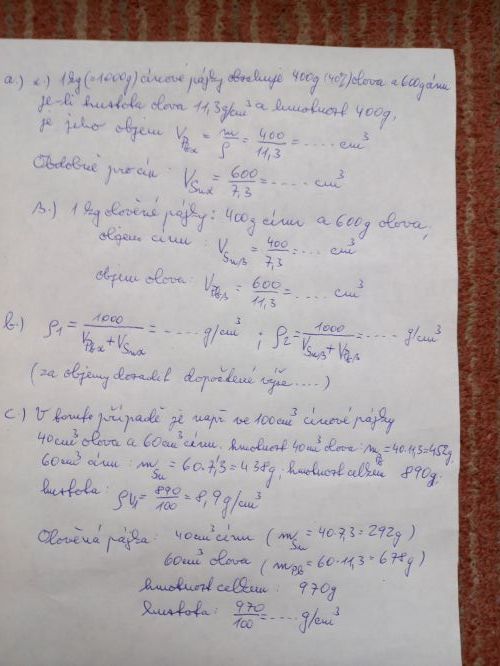 a.) α.) 1kg (=1000g) cínové pájky obsahuje 400g (40%) olova a 600g cínu
je-li hustota olova 11,3g/cm³ a hmotnost 400g,
je jeho objem V_Pbα = m/ρ = 400/11,3 = .... cm³
Obdobně pro cín: V_Snα = 600/7,3 = ..... cm³
β.) 1kg olověné pájky: 400g cínu a 600g olova,
objem cínu: V_Snβ = 400/7,3 = ... cm³
objem olova: V_Pbβ = 600/11,3 = .... cm³
b.) ρ1 = 1000/(V_Pbα + V_Snα) = ..... g/cm³ ; ρ2 = 1000/(V_Snβ + V_Pbβ) = .... g/cm³
(za objemy dosadit dopočtené výše....)
c.) V tomto případě je např ve 100cm³ cínové pájky
40cm³ olova a 60cm³ cínu. hmotnost 40cm³ olova: m_Pb = 40·11,3 = 452g.
60cm³ cínu: m_Sn = 60·7,3 = 438g; hmotnost celkem 890g;
hustota: ρV1 = 890/100 = 8,9g/cm³
Olověná pájka: 40cm³ cínu (m_Sn = 40·7,3 = 292g)
60cm³ olova (m_Pb = 60·11,3 = 678g)
hmotnost celkem: 970g
hustota: 970/100 = .... g/cm³